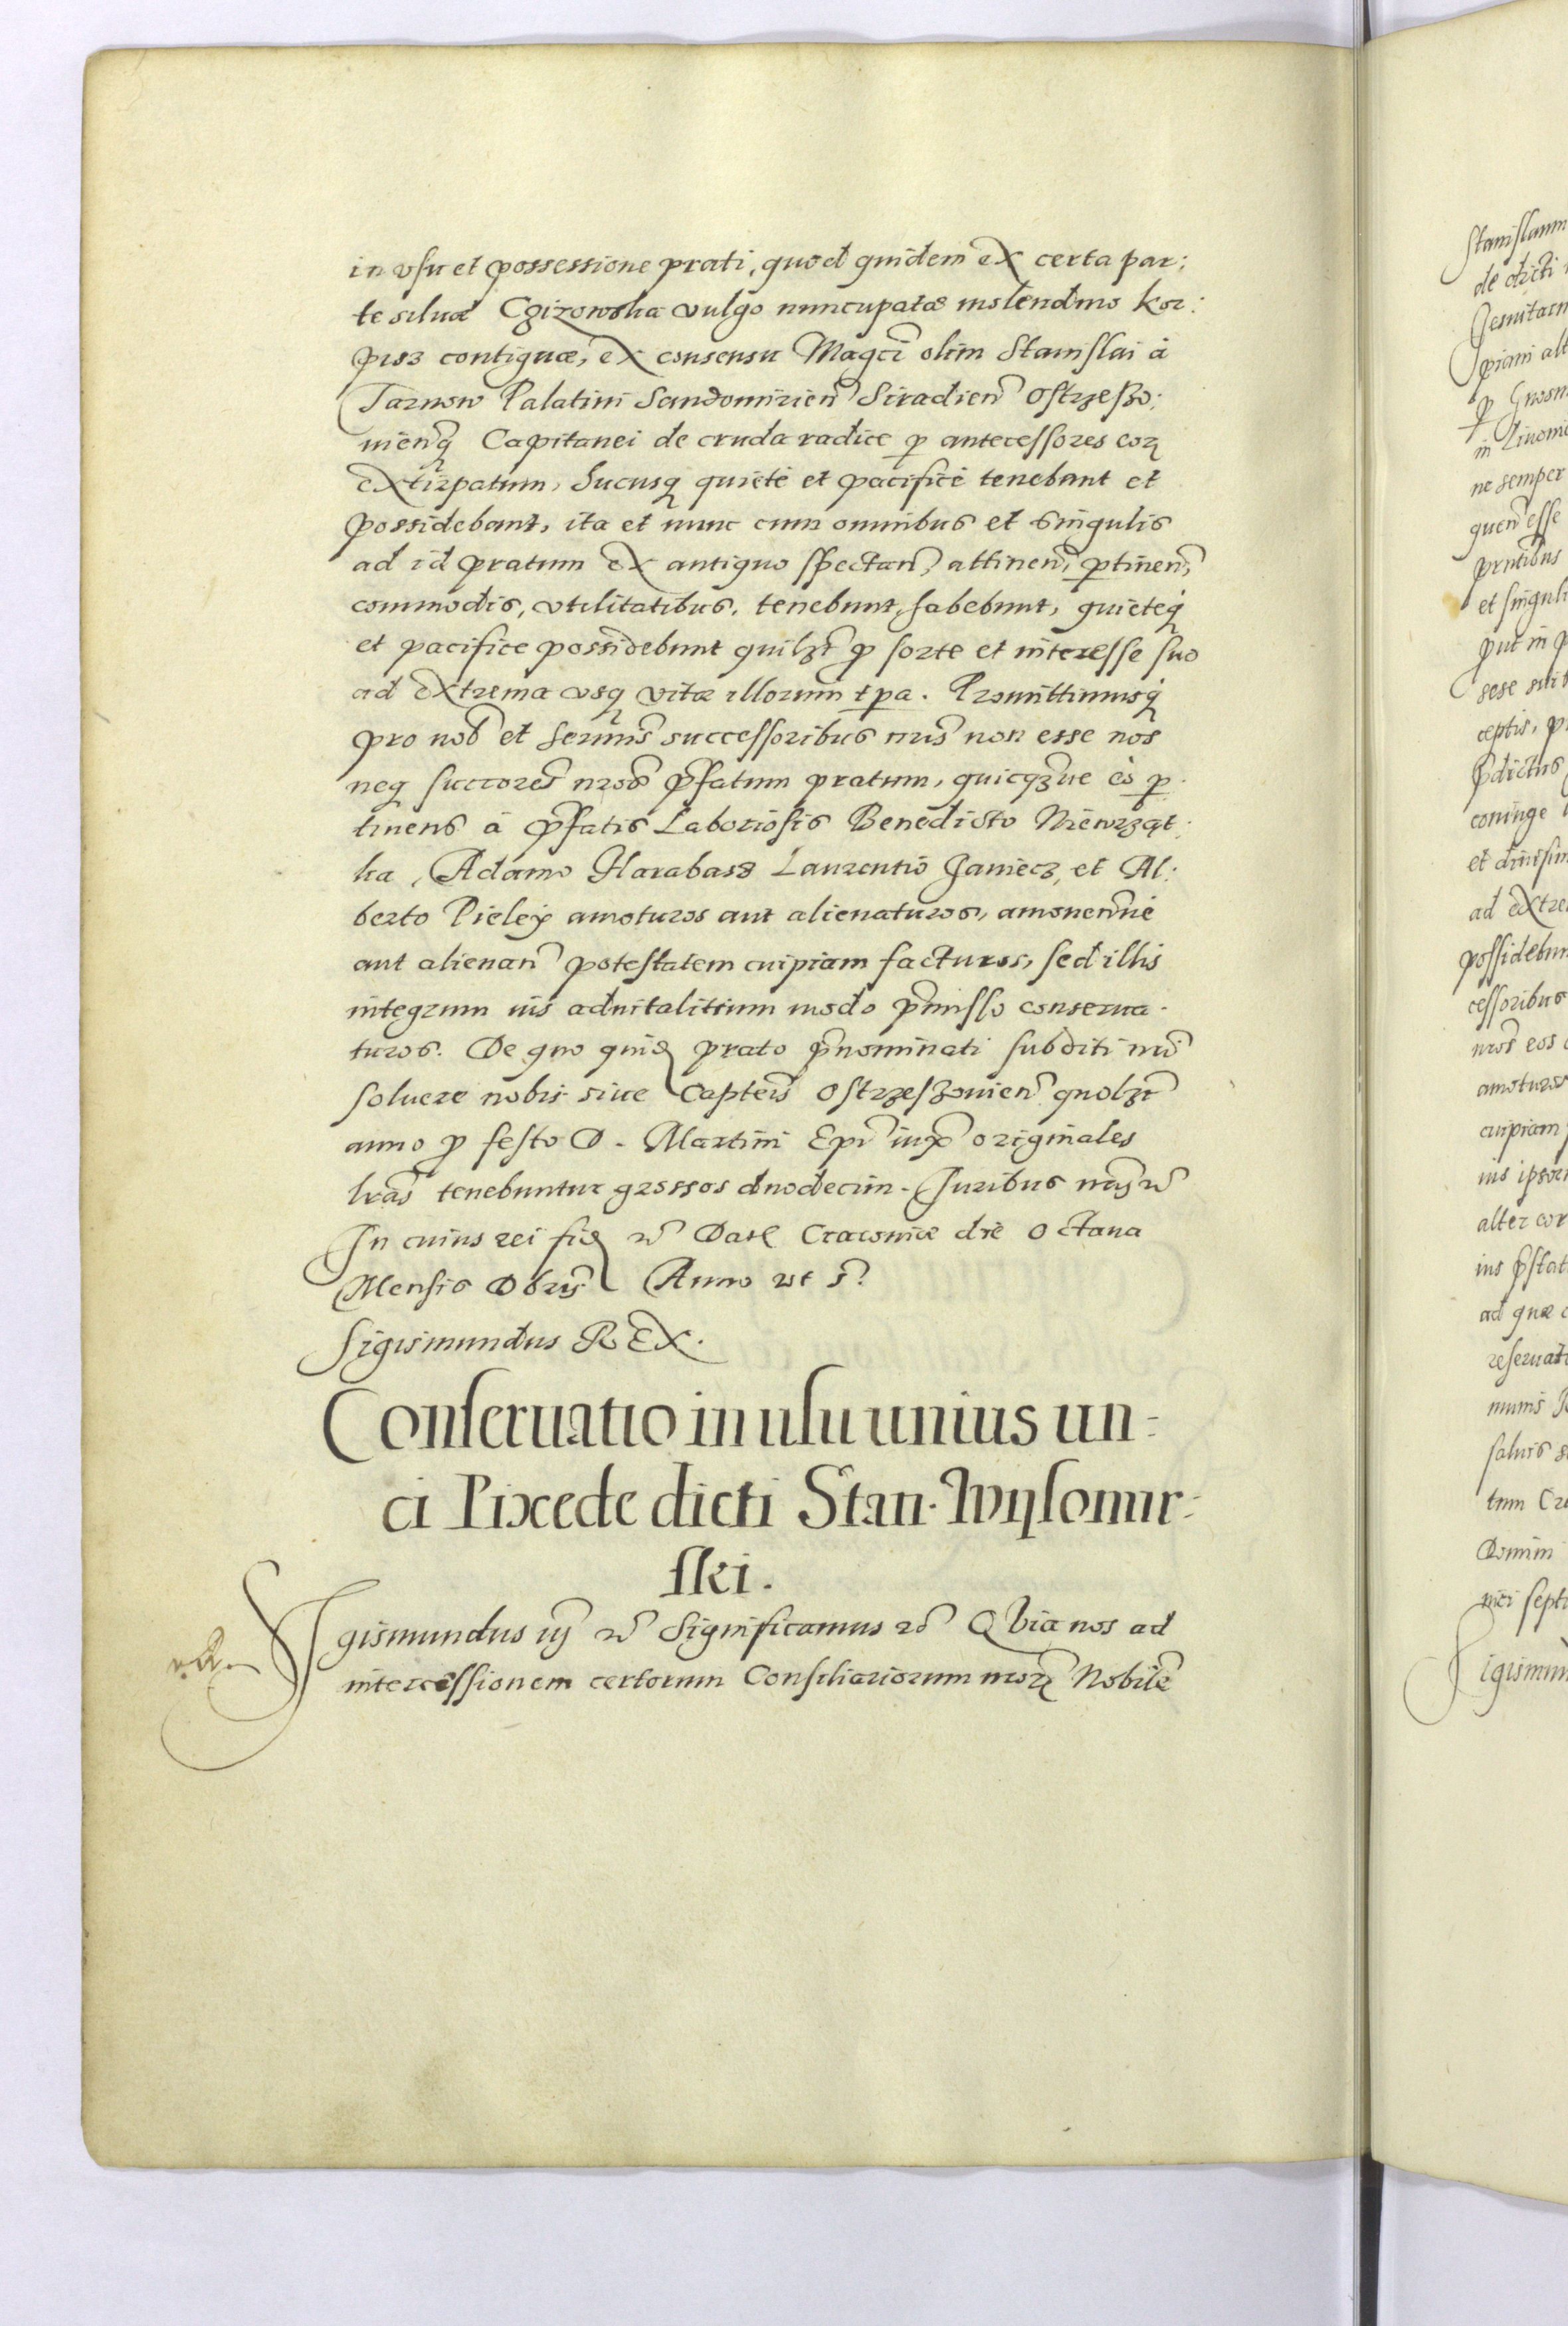 in vsu et possessione prati, quod quidem ex certa par:
te siluæ Cgizowska vulgo nuncupatæ molendino Kor:
pisz contiguæ, ex consensu Magci olim Stanislai à
Tarnow Palatini Sandomirien Siradien Ostrzeszo:
uienq Capitanei de cruda radice p antecessores eorz
extirpatum, hucusq quietè et pacificè tenebant et
possidebant, ita et nunc cum omnibus et singulis
ad id pratum ex antiquo spectan, attinen, ptinen,
commodis, vtilitatibus, tenebunt, habebunt, quieteq
et pacifice possidebunt quilzt p sorte et interesse suo
ad extrema vsq vitæ illorum tpa. Promittimusq
pro nob et Sermis successoribus nris non esse nos
neq succores nros pfatum pratum, quicqzue eò p
tinens à pfatis Laboriosis Benedicto Niewrzqt
ka, Adamo Harabasz Laurentio Janiecz, et Al:
berto Pielex amoturos aut alienaturos, amouenuè
aut alienan potestatem cuipiam facturos, sed illis
integrum ius aduitalitium modo pmisso conserua
turos. De quo quid prato pnominati subditi nri
soluere nobis siue Capteis Ostrzeszouien quolzt
anno p festo D. Martini Epi iux originales
lras tenebuntur grossos duodecim. Juribus nris etc
In cuius rei fid etc Dat Cracouiæ die Octaua
Mensis Xbris Anno vt s.
Sigismundus REX.
Conseruatio in usu unius un-
ci Pixede dicti Stan. Wysomir-
ski.
Sigismundus iij etc Significamus etc Qvia nos ad
intercessionem certorum Consiliariorum nrorz Nobile
Stanislaum
de dicti
Jesuitarn
piam alt
p Grosm
in Liuoni
ne semper
quen esse
prntibus
et singuli
put in p
sese sui
ceptis, p
pdictus
coniuge
et diuisim
ad extre
possidebun
cessoribus
nros eos
amoturos
cuipiam
ius ipsor
alter cor
ius pstat
ad quæ
reseruat
mums
saluis
tum Cra
Domini
nri sept
Sigismun